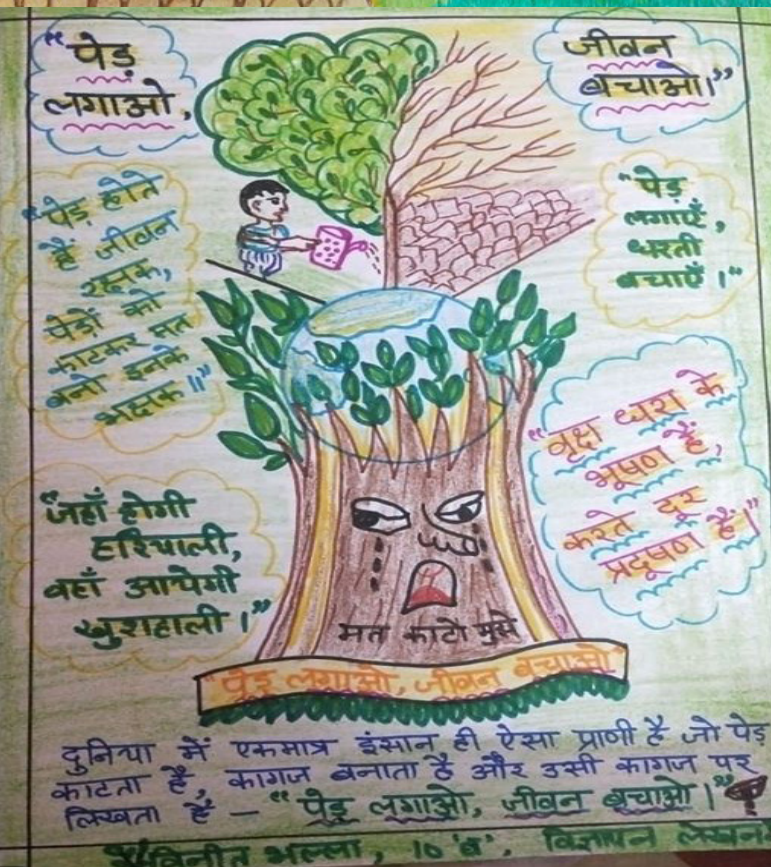 "पेड़
लगाओ,
जीवन
बचाओ।"
"पेड़ होते
हैं जीवन
रक्षक,
पेड़ों को
काटकर मत
बनो इनके
भक्षक॥"
"पेड़
लगाएँ,
धरती
बचाएँ।"
"वृक्ष धरा के
भूषण हैं,
करते दूर
प्रदूषण हैं।"
"जहाँ होगी
हरियाली,
वहाँ आयेगी
खुशहाली।"
मत काटो मुझे
"पेड़ लगाओ, जीवन बचाओ"
दुनिया में एकमात्र इंसान ही ऐसा प्राणी है जो पेड़
काटता है, कागज बनाता है और उसी कागज पर
लिखता है – "पेड़ लगाओ, जीवन बचाओ।"
विनीत भल्ला, 10 'ब', विज्ञापन लेखन